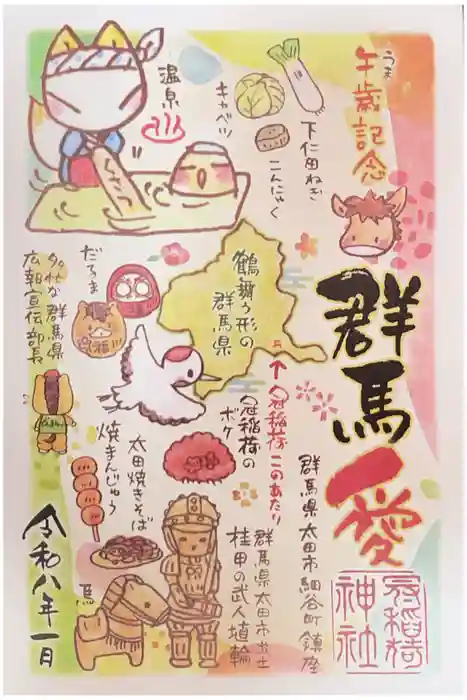 午歳記念
うま
群馬愛
冠稲荷
神社
群馬県太田市細谷町鎮座
下仁田ねぎ
こんにゃく
キャベツ
温泉
鶴舞う形の
群馬県
↑冠稲荷このあたり
冠稲荷の
ボケ
群馬県太田市出土
挂甲の武人埴輪
だるま
多忙な群馬県
広報宣伝部長
太田焼きそば
焼まんじゅう
馬
令和八年一月